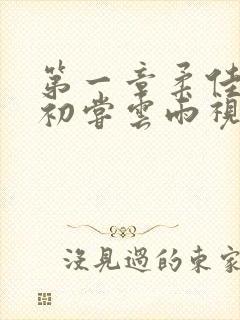 第一章柔佳
初嘗雲雨視
沒見過的東家